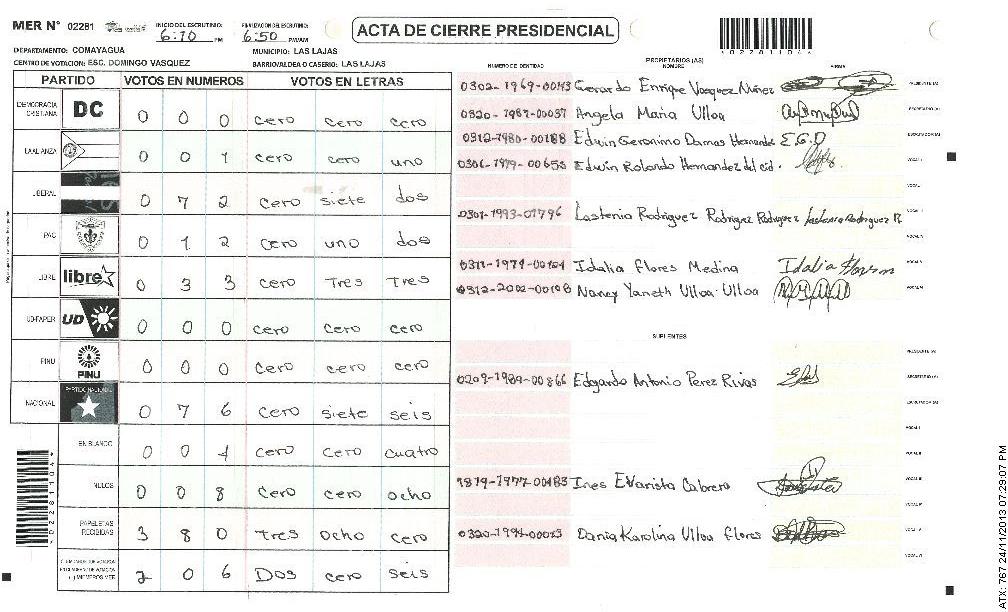 MER N° 02281 INICIO DEL ESCRUTINIO: 6:10 PM FINALIZACION DEL ESCRUTINIO: 6:50 PM/AM ACTA DE CIERRE PRESIDENCIAL
DEPARTAMENTO: COMAYAGUA MUNICIPIO: LAS LAJAS
CENTRO DE VOTACION: ESC. DOMINGO VASQUEZ BARRIO/ALDEA O CASERIO: LAS LAJAS
PARTIDO VOTOS EN NUMEROS VOTOS EN LETRAS
DEMOCRACIA CRISTIANA DC 0 0 0 cero cero cero
LA ALIANZA 0 0 1 cero cero uno
LIBERAL 0 7 2 cero siete dos
PAC 0 1 2 cero uno dos
LIBRE libre 0 3 3 cero Tres Tres
UD-FAPER UD 0 0 0 cero cero cero
PINU PINU 0 0 0 cero cero cero
NACIONAL PARTIDO NACIONAL 0 7 6 cero siete seis
EN BLANCO 0 0 4 cero cero cuatro
NULOS 0 0 8 cero cero ocho
PAPELETAS RECIBIDAS 3 8 0 Tres ocho cero
MIEMBROS MER 2 0 6 Dos cero seis
NUMERO DE IDENTIDAD PROPIETARIOS (AS) NOMBRE FIRMA
0302-1969-00143 Gerardo Enrique Vasquez Nuñez
0320-1987-00037 Angela Maria Ulloa
0312-1980-00188 Edwin Geronimo Damas Hernandez E.G.D
0306-1979-00653 Edwin Rolando Hernandez del cid.
0301-1993-01796 Lastenia Rodriguez Rodriguez Rodriguez Lastenia Rodriguez R
0311-1979-00104 Idalia Flores Medina Idalia Flores m
0312-2002-00108 Nancy Yaneth Ulloa Ulloa
SUPLENTES
0209-1989-00866 Edgardo Antonio Perez Rivas
1819-1977-00183 Ines Evarista Cabrera
0320-1994-00023 Dania Karolina Ulloa Flores
ATX: 767 24/11/2013 07:29:07 PM